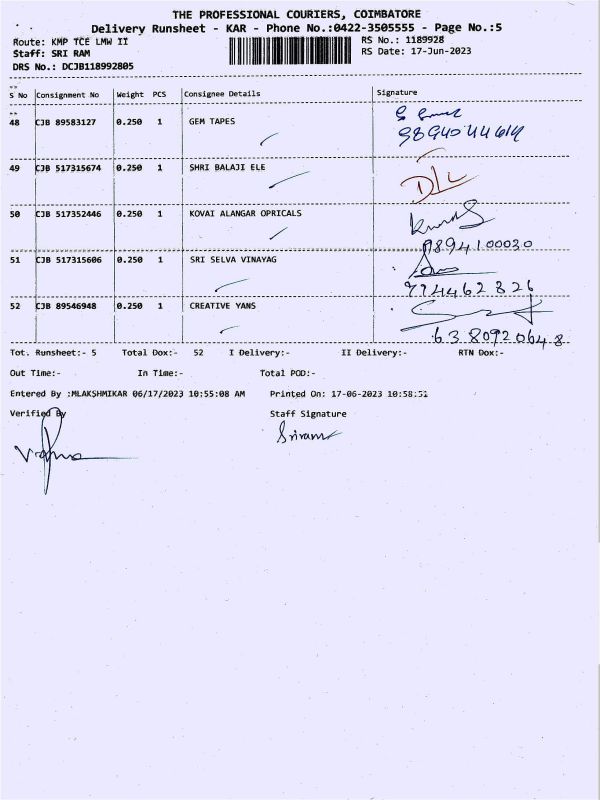 THE PROFESSIONAL COURIERS, COIMBATORE
Delivery Runsheet - KAR - Phone No.:0422-3505555 - Page No.:5
Route: KMP TCE LMW II RS No.: 1189928
Staff: SRI RAM RS Date: 17-Jun-2023
DRS No.: DCJB118992805
S No Consignment No Weight PCS Consignee Details Signature
48 CJB 89583127 0.250 1 GEM TAPES
49 CJB 517315674 0.250 1 SHRI BALAJI ELE
50 CJB 517352446 0.250 1 KOVAI ALANGAR OPRICALS
9894100030
51 CJB 517315606 0.250 1 SRI SELVA VINAYAG
9774462826
52 CJB 89546948 0.250 1 CREATIVE YANS
6380920648
Tot. Runsheet:- 5 Total Dox:- 52 I Delivery:- II Delivery:- RTN Dox:-
Out Time:- In Time:- Total POD:-
Entered By :MLAKSHMIKAR 06/17/2023 10:55:08 AM Printed On: 17-06-2023 10:58:51
Verified By Staff Signature
Sriram